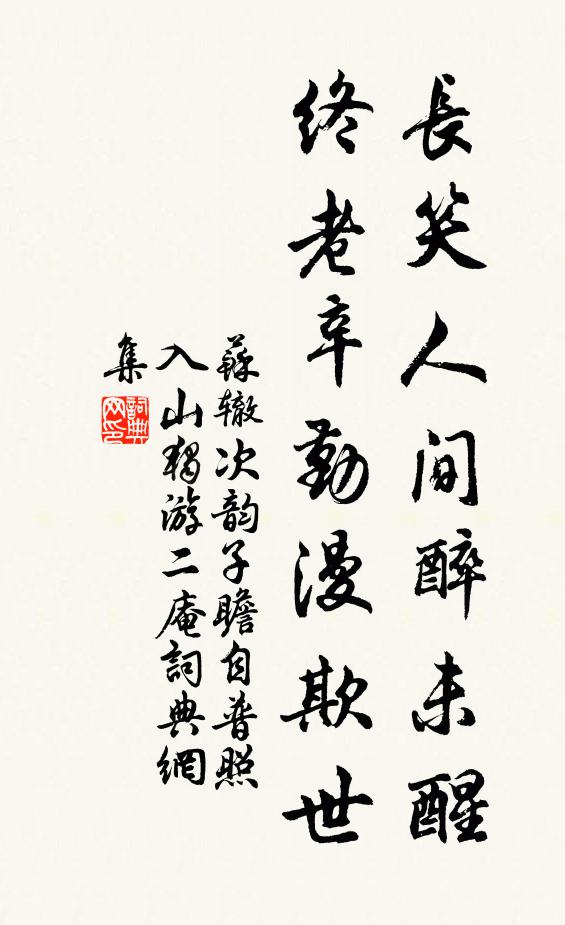 長笑人间醉未醒
終老辛勤漫欺世
蘇辙次韵子瞻自普照
入山独游二庵詞典網
集
詞典
网印